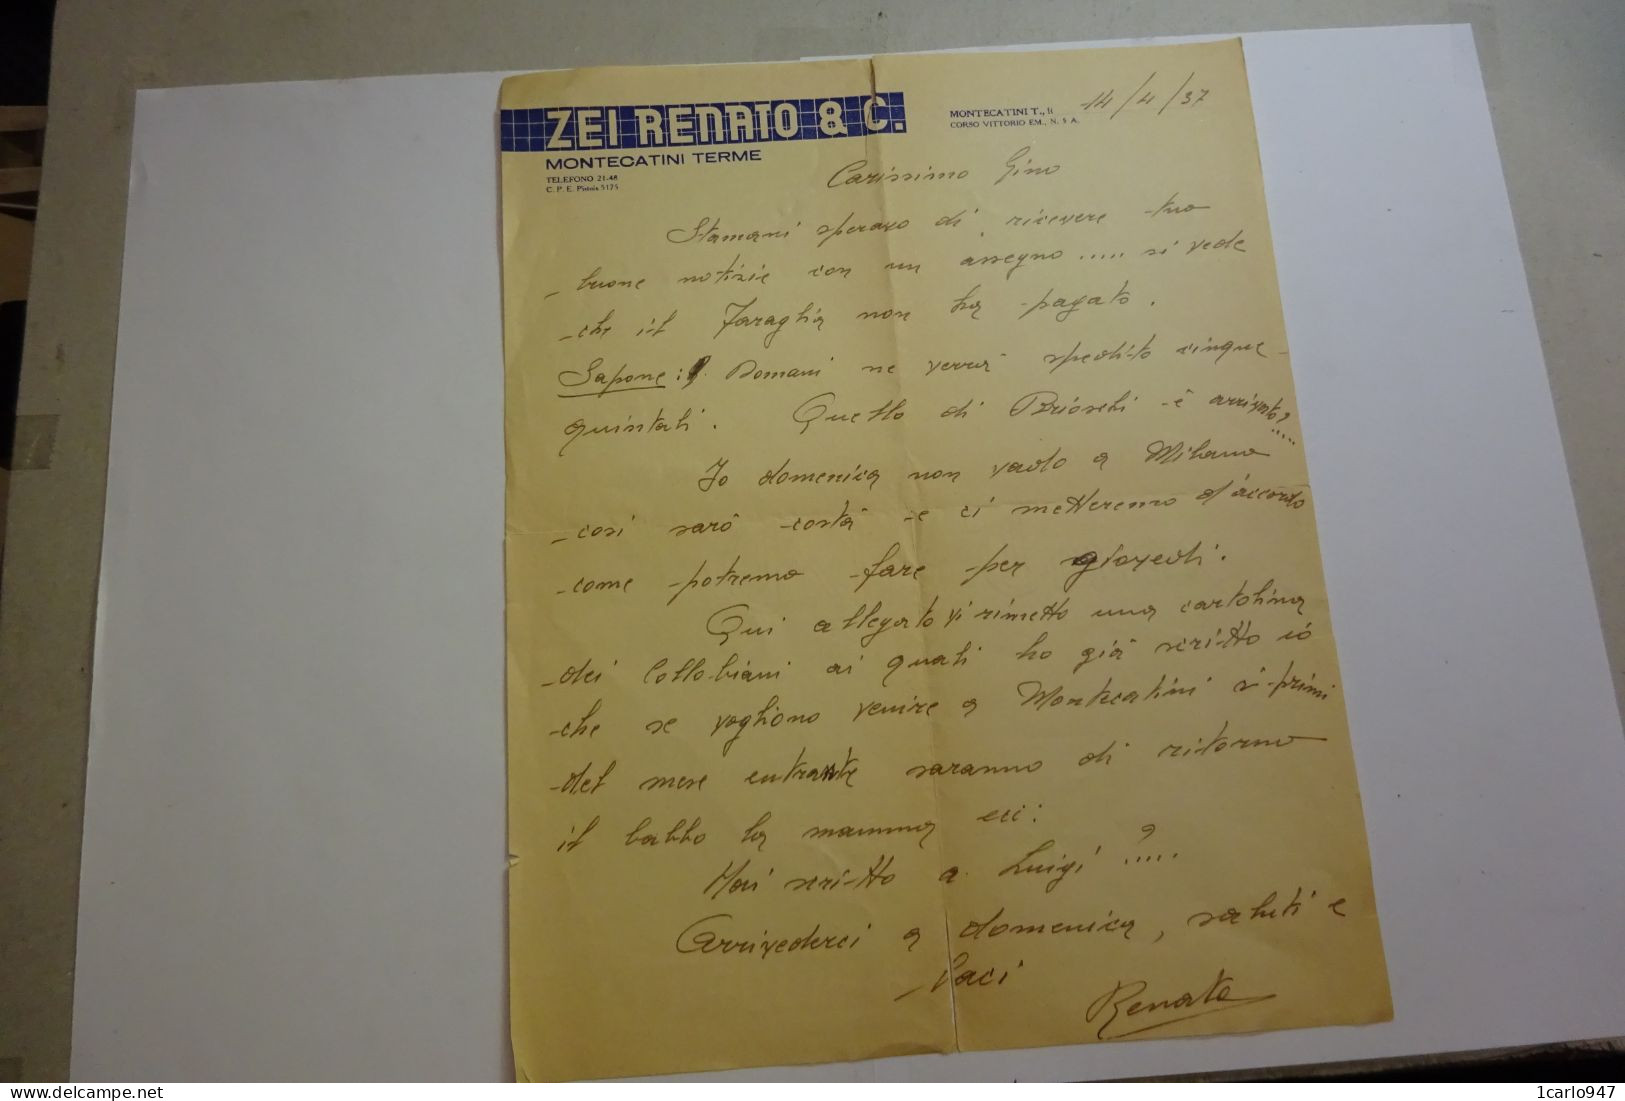 ZEI RENATO & C.
MONTECATINI TERME
TELEFONO 21-48
C. P. E. Pistoia 5175
MONTECATINI T., li 14/4/37
CORSO VITTORIO EM., N. 5 A.
Carissimo Gino
Stamani speravo di ricevere tue
buone notizie con un assegno ..... si vede
che il Faraglia non ha pagato.
Sapone: Domani ne verrà spedito cinque
quintali. Quello di Brioschi è arrivato?.....
Io domenica non vado a Milano
così sarò costà e ci metteremo d'accordo
come potremo fare per giovedi.
Qui allegato vi rimetto una cartolina
dei Collobiani ai quali ho già scritto io
che se vogliono venire a Montecatini ai primi
del mese entrante saranno di ritorno
il babbo la mamma ecc:
Hai scritto a Luigi ?.....
Arrivederci a domenica, saluti e
baci
Renato
1carlo947